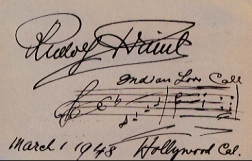 Rudolf Friml
Indian Love Call
March 1 1943 Hollywood Cal.